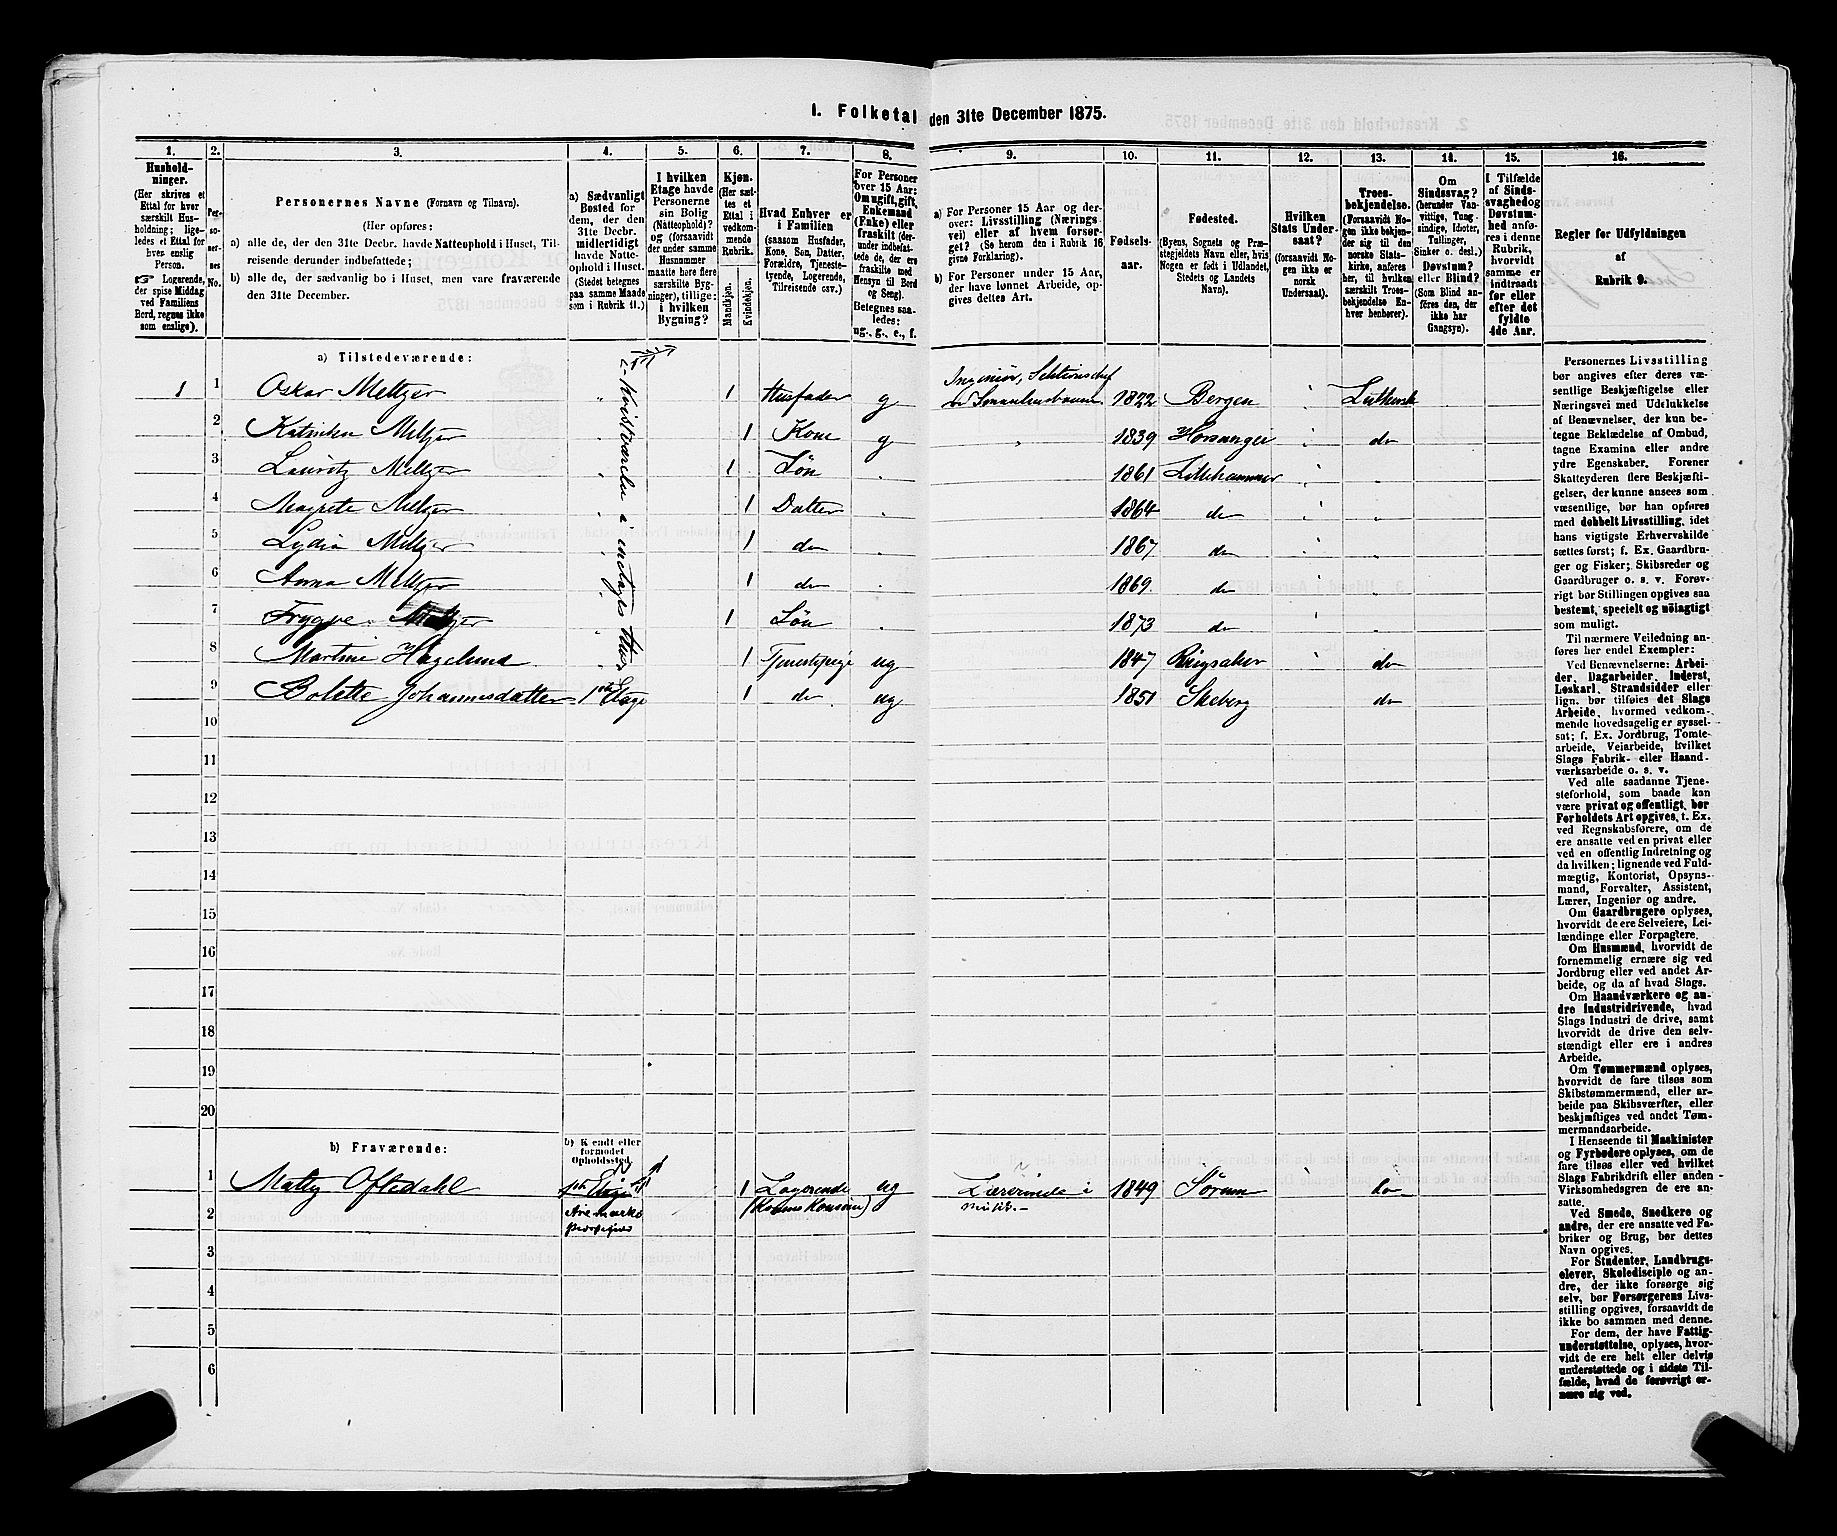 1. Folketal den 31te December 1875.
1.
2.
3.
4.
5.
6.
7.
8.
9.
10.
11.
12.
13.
14.
15.
16.
Hushold-
ninger.
(Her skrives et
Ettal for hver
særskilt Hus-
holdning; lige-
ledes et Ettal for
hver enslig
Person.
Logerende,
der spise Middag
ved Familiens
Bord, regnes ikke
som enslige).
Per-
so-
ner-
nes
No.
Personernes Navne (Fornavn og Tilnavn).
(Her opføres:
a) alle de, der den 31te Decbr. havde Natteophold i Huset, Til-
reisende derunder indbefattede;
b) alle de, der sædvanlig bo i Huset, men vare fraværende
den 31te December.
a) Sædvanligt
Bosted for
dem, der den
31te Decbr.
midlertidigt
havde Natte-
ophold i Huset.
(Stedet betegnes
paa samme Maade
som i Rubrik 11.)
I hvilken
Etage havde
Personerne
sin Bolig
(Natteophold)?
og (forsaavidt
der under samme
Husnummer
maatte høre flere
særskilte Byg-
ninger), tillige:
i hvilken
Bygning?
Kjøn.
(Her sæt-
tes et
Ettal i
vedkom-
mende
Rubrik.
Mandkjøn.
Kvindekjøn.
Hvad Enhver er
i Familien
(saasom Husfader,
Kone, Søn, Datter,
Forældre, Tjeneste-
tyende, Logerende,
Tilreisende osv.)
For Personer
over 15 Aar:
Om ugift, gift,
Enkemand
(Enke) eller
fraskilt (der-
under indbefat-
tede de, der ere
fraskilte med
Hensyn til Bord
og Seng).
Betegnes saa-
ledes:
ug., g., e., f.
a) For Personer 15 Aar og der-
over: Livsstilling (Nærings-
vei) eller af hvem forsør-
get? (Se herom den i Rubrik 16
givne Forklaring).
b) For Personer under 15 Aar,
der have lønnet Arbeide, op-
gives dettes Art.
Fødsels-
aar.
Fødested.
(Byens, Sognets og Præ-
stegjeldets Navn eller, hvis
Nogen er født i Udlandet,
Stedets og Landets
Navn).
Hvilken
Stats Under-
saat?
(forsaavidt No-
gen ikke er
norsk
Undersaat).
Troes-
bekjendelse.
(Forsaavidt No-
gen ikke bekjen-
der sig til den
norske Stats-
kirke, anføres
her, til hvilken
særskilt Troes-
bekjendelse En-
hver henhører).
Om
Sindssvag?
(herunder Van-
vittige, Tung-
sindige, Idioter,
Tullinger,
Sinker o. desl.)
Døvstum?
eller Blind?
(Som Blind an-
føres den, der
ikke har
Gangsyn).
I Tilfælde
af Sinds-
svaghed og
Døvstum-
hed anfø-
res i denne
Rubrik,
hvorvidt
samme er
indtraadt
før eller
efter det
fyldte
4de Aar.
Regler for Udfyldningen
af
Rubrik 9.
a) Tilstedeværende:
1 1 Oskar Meltzer 1 Husfader g Ingeniør, Sektionschef 1822 Bergen Luthersk
2 Katrikea Meltzer 1 Kone g 1839 do
3 Lauritz Meltzer 1 Søn 1861 Lillehammer
4 Magrete Meltzer 1 Datter 1864 do
5 Lydia Meltzer 1 do 1867 do
6 Anna Meltzer 1 do 1869 do
7 Trygve Meltzer 1 Søn 1873 do
8 Martine Hagelund 1 Tjenestepige ug 1847 Ringsaker do
9 Bolette Johannesdatter 1ste Etage 1 do ug 1851 Skeberg do
10
11
12
13
14
15
16
17
18
19
20
b) Fraværende:
b) Kjendt eller
formodet
Opholdssted.
1 Matty Oftedahl 1 Logerende ug Lærerinde i 1849 Sørum do
Musik.
Aremarks
Prestegjeld
2
3
4
5
6
Personernes Livsstilling
bør angives efter deres væ-
sentlige Beskjæftigelse eller
Næringsvei med Udelukkelse
af Benævnelser, der kun be-
tegne Beklædelse af Ombud,
tagne Examina eller andre
ydre Egenskaber. Forener
Skatteyderen flere Beskjæfti-
gelser, der kunne ansees som
væsentlige, bør han opføres
med dobbelt Livsstilling, idet
hans vigtigste Erhvervskilde
sættes først; f. Ex. Gaardbru-
ger og Fisker; Skibsreder og
Gaardbruger o. s. v. Forøv-
rigt bør Stillingen opgives saa
bestemt, specielt og nøiagtigt
som muligt.
Til nærmere Veiledning an-
føres her endel Exempler:
Ved Benævnelserne: Arbei-
der, Dagarbeider, Inderst,
Løskarl, Strandsidder eller
lign. bør tilføies det Slags
Arbeide, hvormed vedkom-
mende hovedsagelig er syssel-
sat; f. Ex. Jordbrug, Tomte-
arbeide, Veiarbeide, hvilket
Slags Fabrik- eller Haand-
værksarbeide o. s. v.
Ved alle saadanne Tjene-
steforhold, som baade kan
være privat og offentligt, bør
Forholdets Art opgives, t. Ex.
ved Regnskabsførere, om de
ere ansatte ved en privat eller
ved en offentlig Indretning og
da hvilken; lignende ved Fuld-
mægtig, Kontorist, Opsyns-
mand, Forvalter, Assistent,
Lærer, Ingeniør og andre.
Om Gaardbrugere oplyses,
hvorvidt de ere Selveiere, Lei-
lændinge eller Forpagtere.
Om Husmænd, hvorvidt de
fornemmelig ernære sig ved
Jordbrug eller ved andet Ar-
beide, og da af hvad Slags.
Om Haandværkere og an-
dre Industridrivende, hvad
Slags Industri de drive, samt
hvorvidt de drive den selv-
stændigt eller ere i andres
Arbeide.
Om Tømmermænd oplyses,
hvorvidt de fare tilsøs som
Skibstømmermænd, eller ar-
beide paa Skibsværfter, eller
beskjæftiges ved andet Tøm-
mermandsarbeide.
I Henseende til Maskinister
og Fyrbødere oplyses, om de
fare tilsøs eller ved hvilket
Slags Fabrikdrift eller anden
Virksomhedsgren de ere an-
satte.
Ved Smede, Snedkere og
andre, der ere ansatte ved Fa-
briker og Brug, bør dettes
Navn opgives.
For Studenter, Landbrugs-
elever, Skoledisciple og an-
dre, der ikke forsørge sig
selv, bør Forsørgerens Livs-
stilling opgives, forsaavidt de
ikke bo sammen med denne.
For dem, der have Fattig-
understøttelse, oplyses, hvor-
vidt de ere helt eller delvis
understøttede og i sidste Til-
fælde, hvad de forøvrigt er-
nære sig ved.